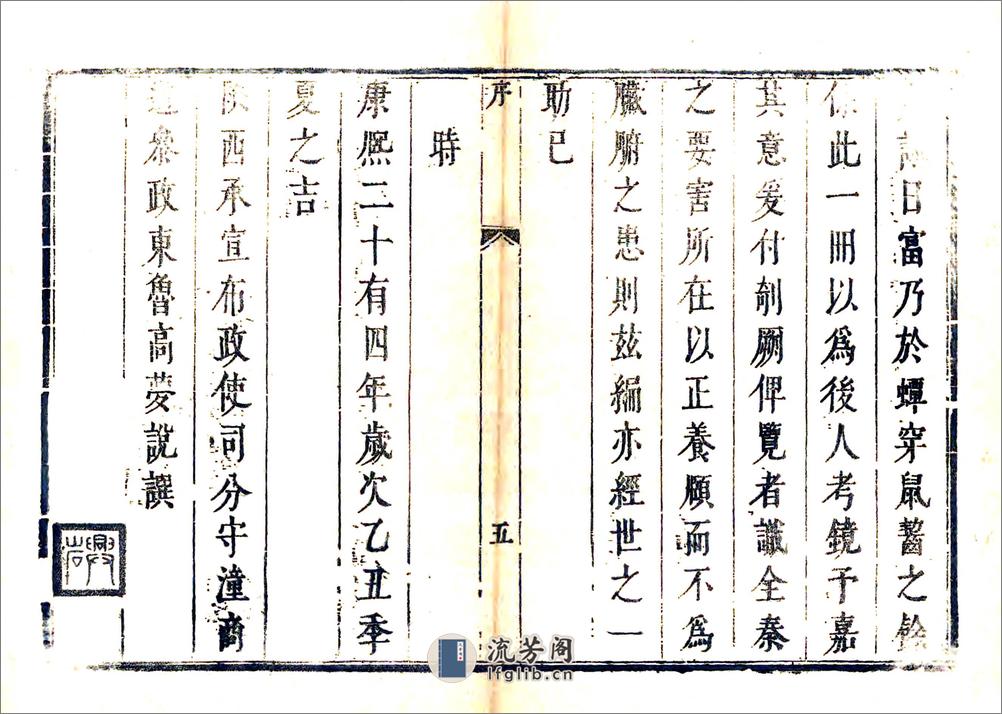 日富乃於蟫穿鼠齧之餘
保此一冊以爲後人考鏡予嘉
其意爰付剞劂俾覽者識全秦
之要害所在以正養頤而不爲
臟腑之患則玆編亦經世之一
助巳
時
康熈二十有四年歲次乙丑季
夏之吉
陝西承宣布政使司分守潼商
道叅政東魯高夢說譔
序
五
流芳阁
lfglib.cn